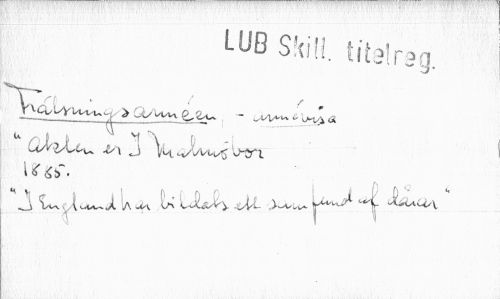 LUB Skill. titelreg.
Frälsningsarméen, - armévisa
"Akten er I Malmöbor
1885.
"I England har bildats ett samfund af dårar"